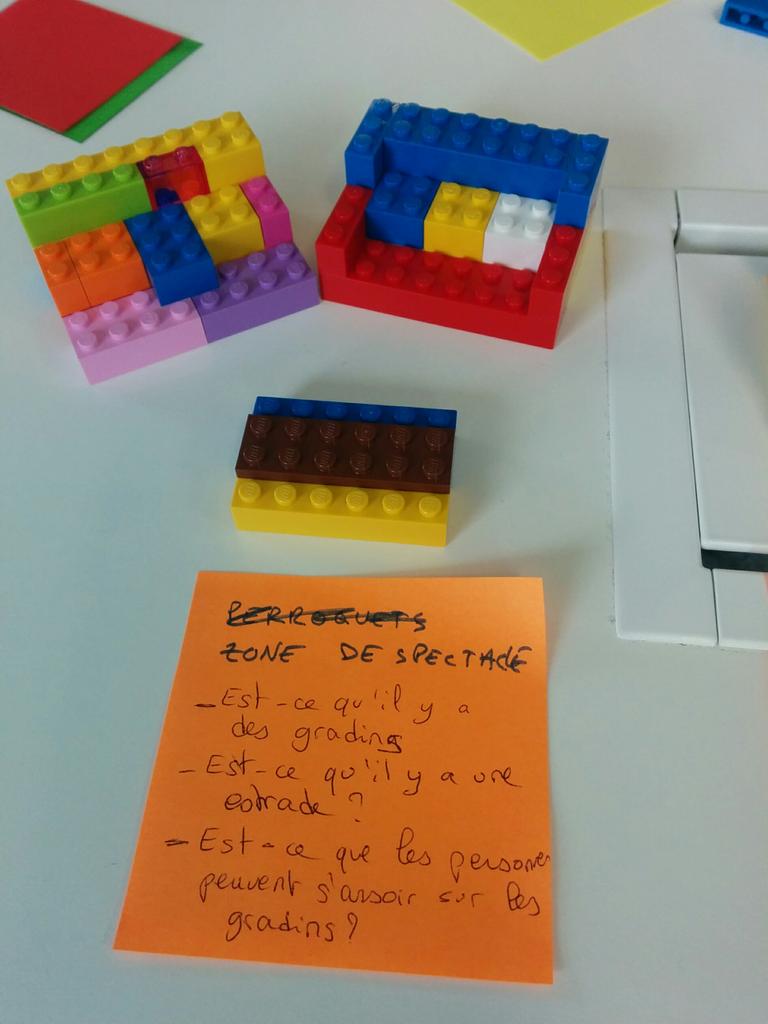 PERROQUETS
ZONE DE SPECTACLE
- Est-ce qu'il y a
des gradins
- Est-ce qu'il y a une
estrade ?
- Est-ce que les personnes
peuvent s'assoir sur les
gradins ?